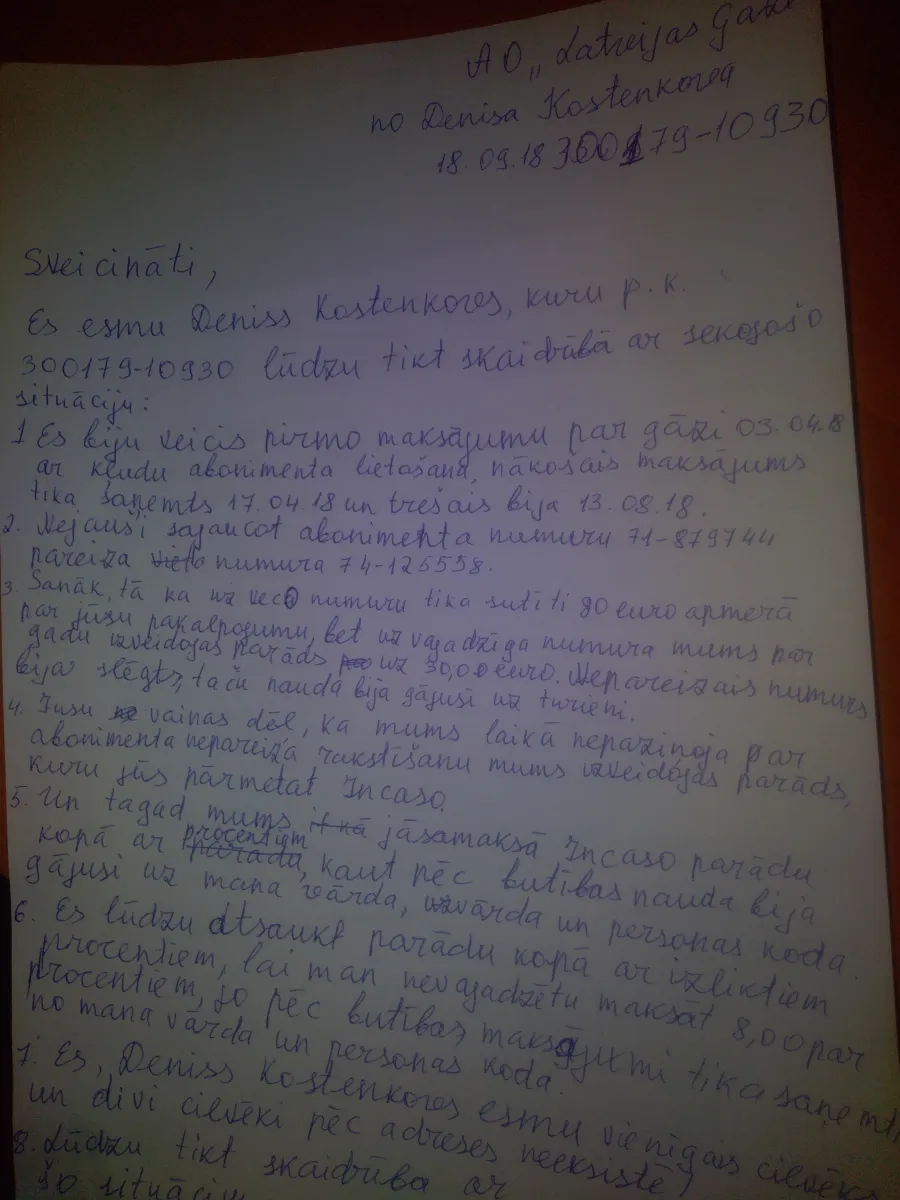 AO „Latvijas Gāze
no Denisa Kostenkova
18.09.18 300179-10930
Sveicināti,
Es esmu Deniss Kostenkovs, kuru p.k.
300179-10930 lūdzu tikt skaidrībā ar sekojošo
situāciju:
1 Es biju veicis pirmo maksājumu par gāzi 03.04.18
ar kļudu abonimenta lietošanā, nākošais maksājums
tika saņemts 17.04.18 un trešais bija 13.08.18.
2. Nejauši sajaucot abonimenta numuru 71-879744
pareiza numura 74-126558.
3. Sanāk, tā ka uz veco numuru tika sutīti 80 euro apmerā
par jūsu pakalpogumu, bet uz vajadzīga numura mums par
gadu izveidojas parāds uz 30,00 euro. Nepareizais numurs
bija slēgts, taču nauda bija gājusi uz turieni.
4. Jusu vainas dēl, ka mums laikā nepazinoja par
abonimenta nepareiza rakstīšanu mums izveidojas parāds,
kuru jūs pārmetat Incaso.
5. Un tagad mums it kā jāsamaksā Incaso parādu
kopā ar procentiem parādu, kaut pēc butības nauda bija
gājusi uz mana vārda, vārda un personas koda.
6. Es lūdzu atsaukt parādu kopā ar izliktiem
procentiem, lai man nevajadzētu maksāt 8,00 par
procentiem, jo pēc butības maksājumi tika saņemti
no mana vārda un personas koda.
7. Es, Deniss Kostenkovs esmu vienīgais cilvēks
un divi cilvēki pēc adreses neeksistē!
8. Lūdzu tikt skaidrība ar
šo situāciju